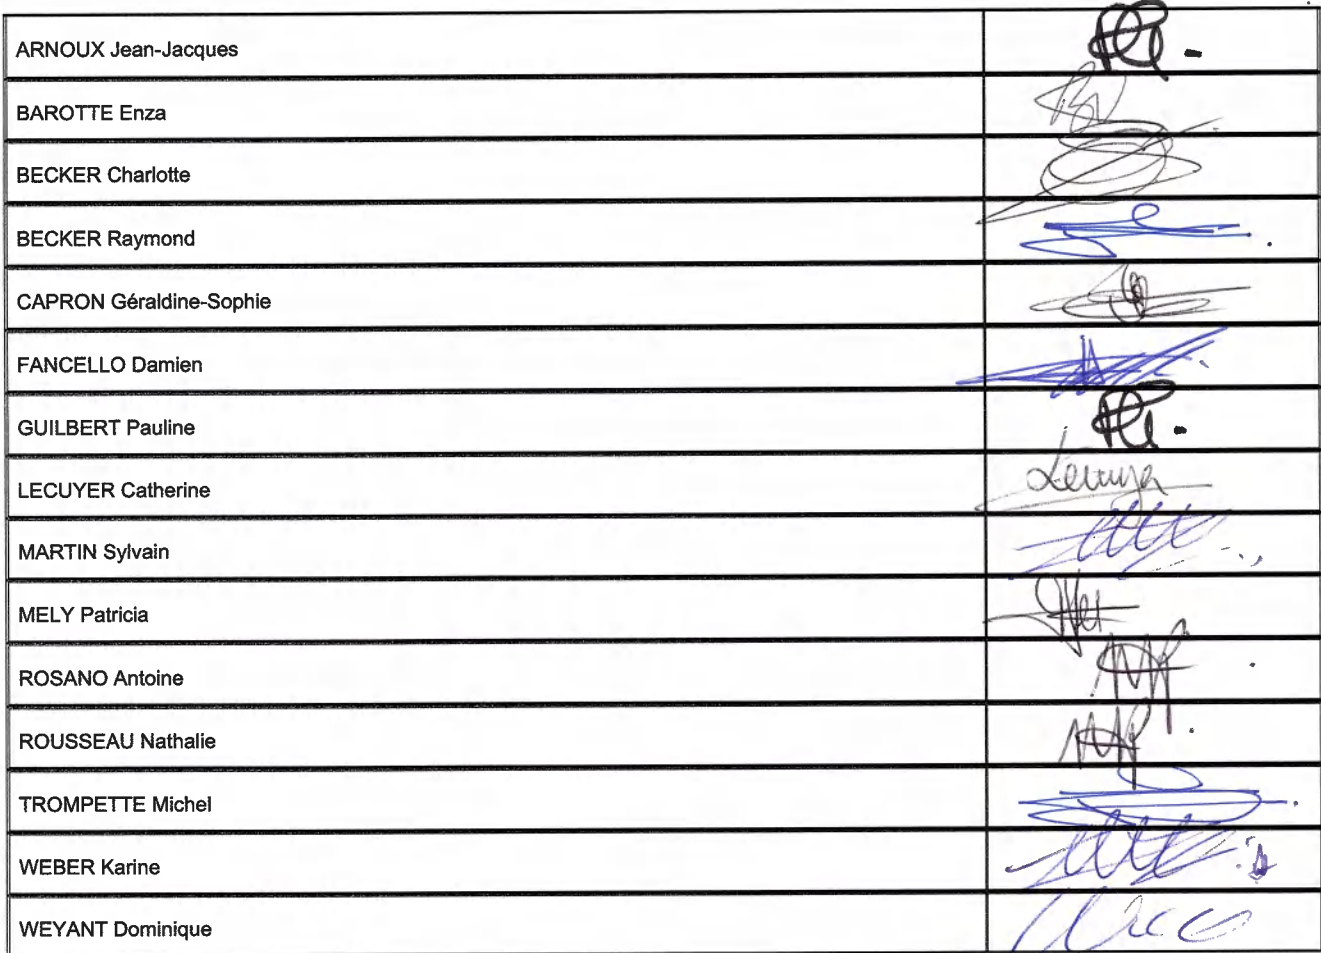 ARNOUX Jean-Jacques
BAROTTE Enza
BECKER Charlotte
BECKER Raymond
CAPRON Géraldine-Sophie
FANCELLO Damien
GUILBERT Pauline
LECUYER Catherine
Lecuyer
MARTIN Sylvain
MELY Patricia
ROSANO Antoine
ROUSSEAU Nathalie
TROMPETTE Michel
WEBER Karine
WEYANT Dominique